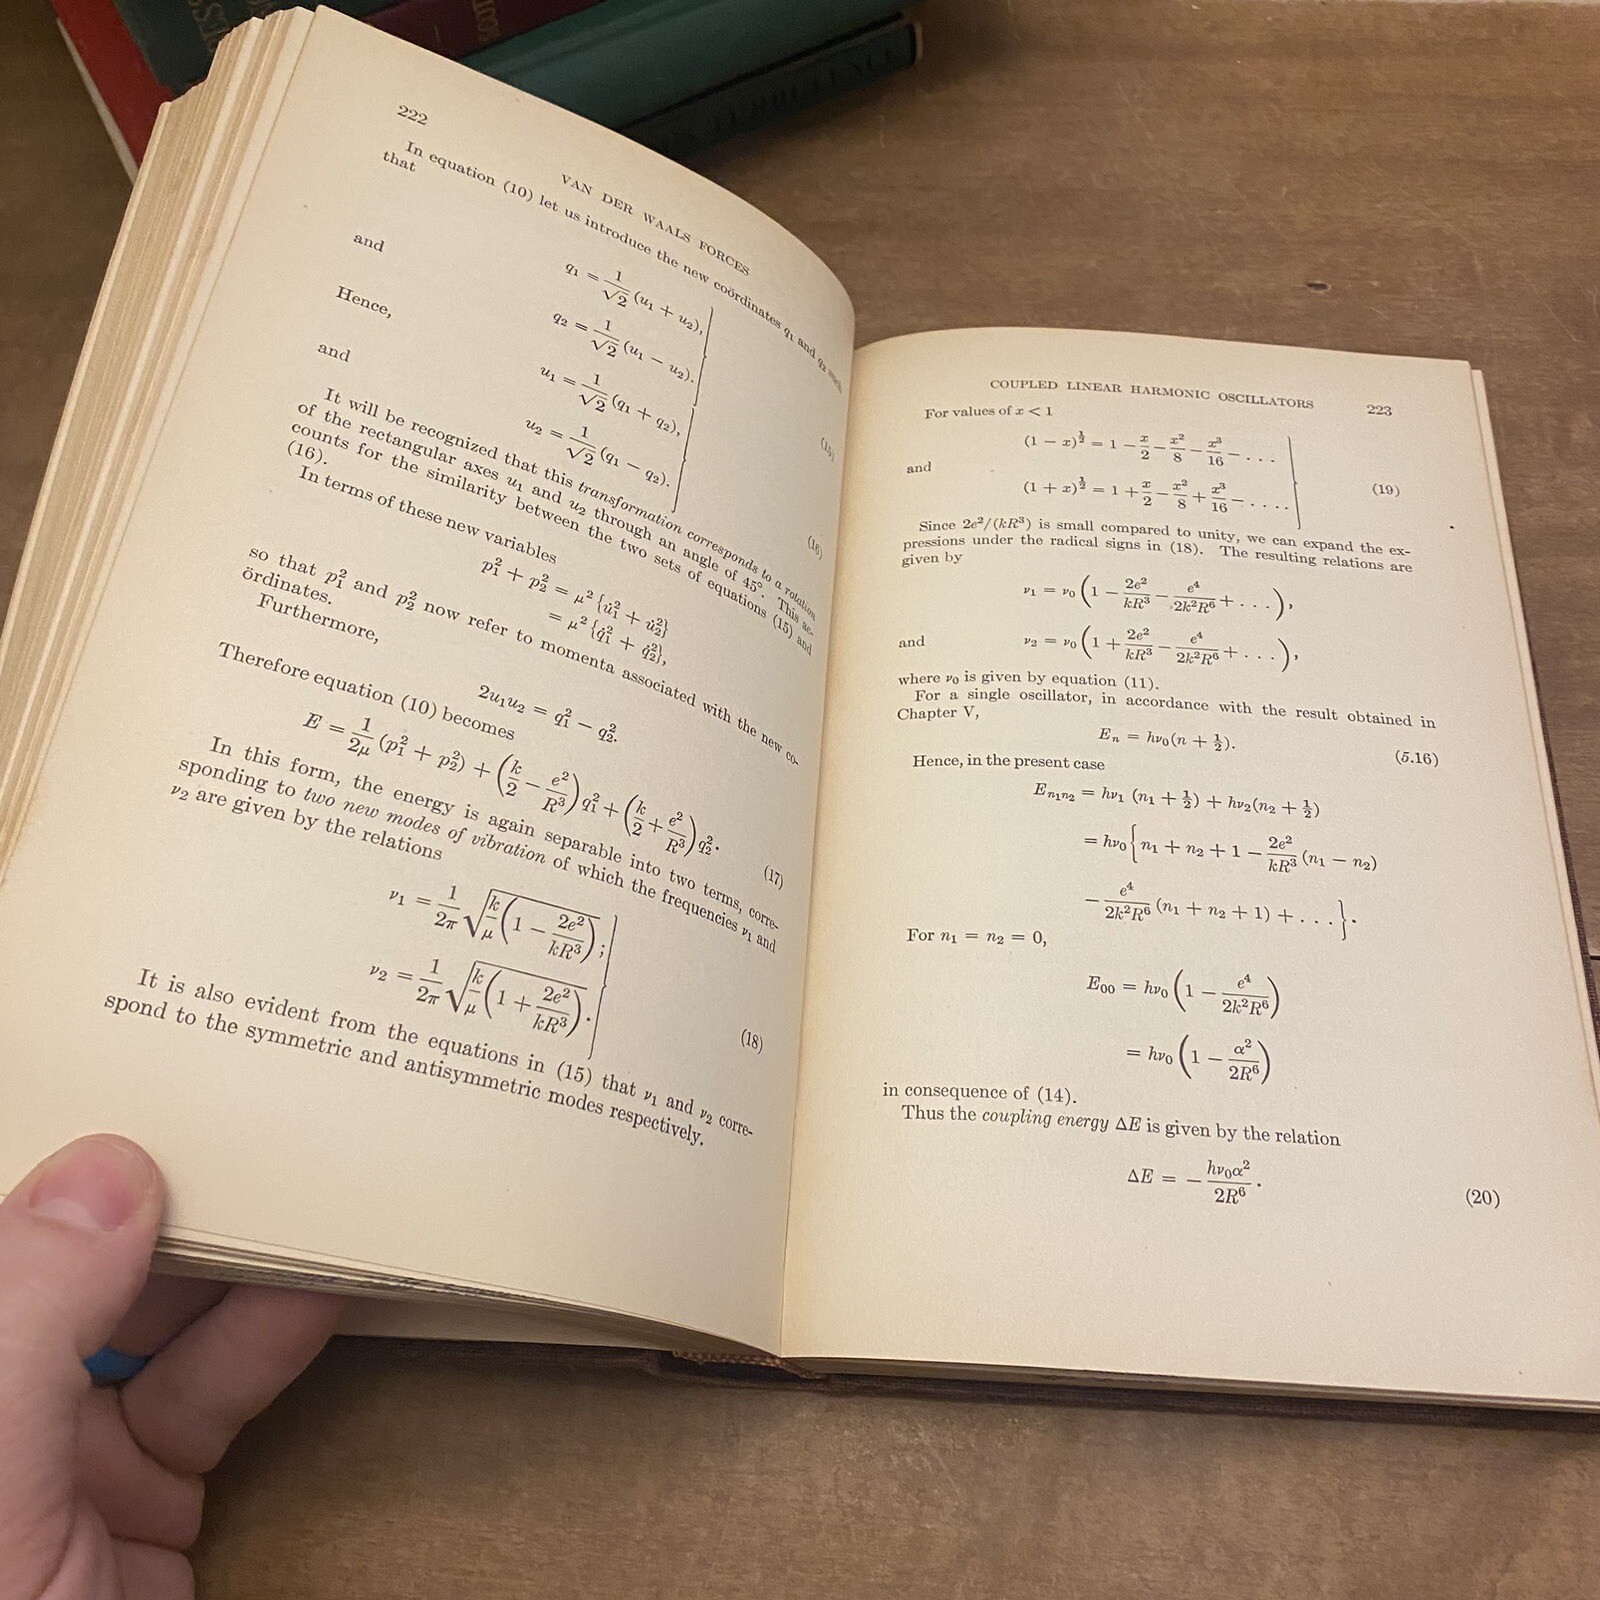 222
VAN DER WAALS FORCES
In equation (10) let us introduce the new coördinates q₁ and q₂ such
that
q₁ = 1/√2 (u₁ + u₂),
and
q₂ = 1/√2 (u₁ − u₂).
(15)
Hence,
u₁ = 1/√2 (q₁ + q₂),
and
u₂ = 1/√2 (q₁ − q₂).
(16)
It will be recognized that this transformation corresponds to a rotation
of the rectangular axes u₁ and u₂ through an angle of 45°. This ac-
counts for the similarity between the two sets of equations (15) and
(16).
In terms of these new variables
p₁² + p₂² = μ² {u̇₁² + u̇₂²}
= μ² {q̇₁² + q̇₂²},
so that p₁² and p₂² now refer to momenta associated with the new co-
ördinates.
Furthermore,
2u₁u₂ = q₁² − q₂².
Therefore equation (10) becomes
E = 1/2μ (p₁² + p₂²) + (k/2 − e²/R³) q₁² + (k/2 + e²/R³) q₂².
(17)
In this form, the energy is again separable into two terms, corre-
sponding to two new modes of vibration of which the frequencies ν₁ and
ν₂ are given by the relations
ν₁ = 1/2π √(k/μ (1 − 2e²/kR³));
ν₂ = 1/2π √(k/μ (1 + 2e²/kR³)).
(18)
It is also evident from the equations in (15) that ν₁ and ν₂ corre-
spond to the symmetric and antisymmetric modes respectively.
COUPLED LINEAR HARMONIC OSCILLATORS 223
For values of x < 1
(1 − x)^½ = 1 − x/2 − x²/8 − x³/16 − . . .
and
(1 + x)^½ = 1 + x/2 − x²/8 + x³/16 − . . . .
(19)
Since 2e²/(kR³) is small compared to unity, we can expand the ex-
pressions under the radical signs in (18). The resulting relations are
given by
ν₁ = ν₀ (1 − 2e²/kR³ − e⁴/2k²R⁶ + . . . ),
and
ν₂ = ν₀ (1 + 2e²/kR³ − e⁴/2k²R⁶ + . . . ),
where ν₀ is given by equation (11).
For a single oscillator, in accordance with the result obtained in
Chapter V,
Eₙ = hν₀(n + ½). (5.16)
Hence, in the present case
Eₙ₁ₙ₂ = hν₁ (n₁ + ½) + hν₂(n₂ + ½)
= hν₀ { n₁ + n₂ + 1 − 2e²/kR³ (n₁ − n₂)
− e⁴/2k²R⁶ (n₁ + n₂ + 1) + . . . }.
For n₁ = n₂ = 0,
E₀₀ = hν₀ (1 − e⁴/2k²R⁶)
= hν₀ (1 − α²/2R⁶)
in consequence of (14).
Thus the coupling energy ΔE is given by the relation
ΔE = − hν₀α²/2R⁶ . (20)